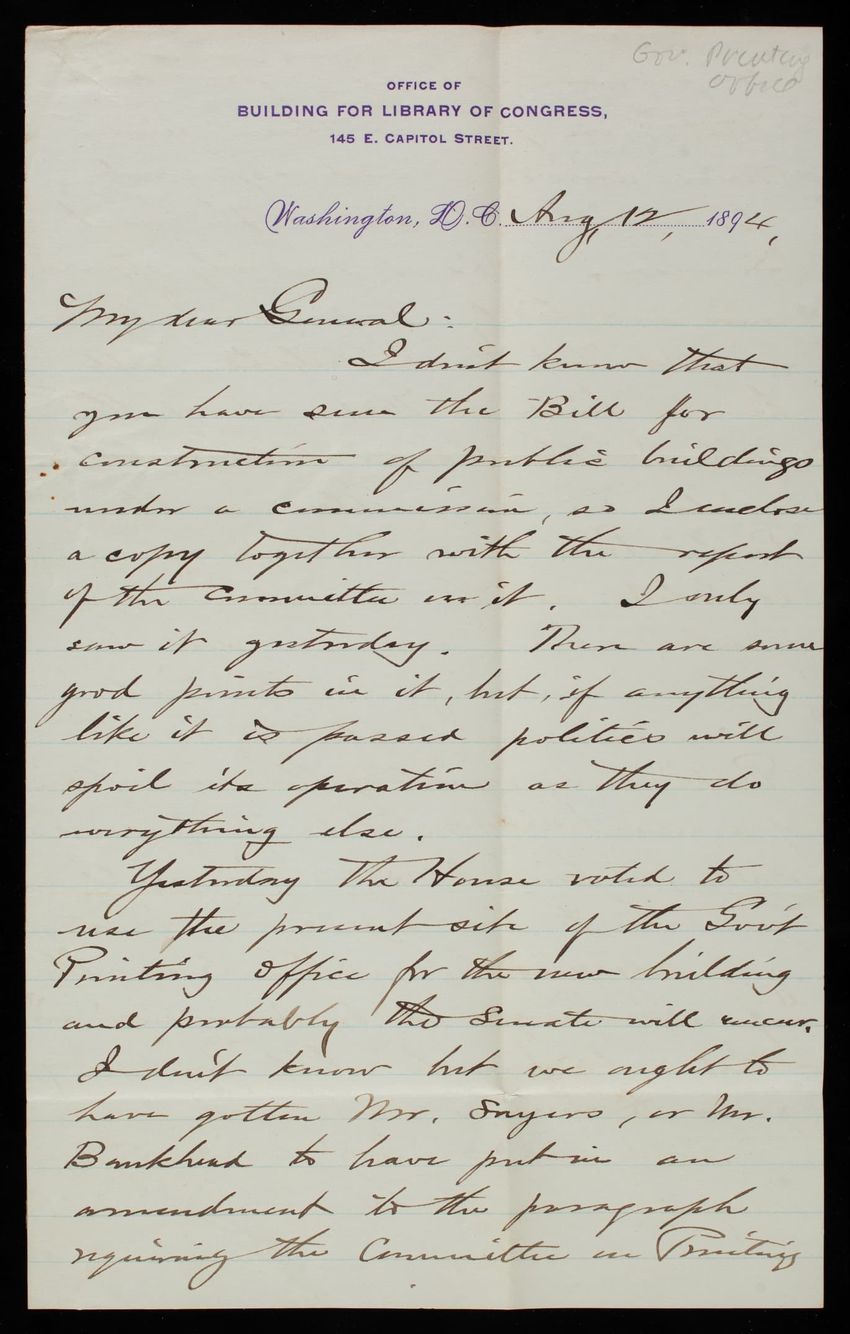 Gov. Printing
Office
OFFICE OF
BUILDING FOR LIBRARY OF CONGRESS,
145 E. CAPITOL STREET.
Washington, D.C. Aug, 12, 1894,
My dear General:
I don't know that
you have seen the Bill for
construction of public buildings
under a commission, so I enclose
a copy together with the report
of the Committee on it. I only
saw it yesterday. There are some
good points in it, but, if anything
like it is passed politics will
spoil its operation as they do
everything else.
Yesterday the House voted to
use the present site of the Gov't
Printing Office for the new building
and probably the Senate will concur.
I don't know but we ought to
have gotten Mr. Sayers, or Mr.
Bankhead to have put in an
amendment to the paragraph
requiring the Committee on Printing